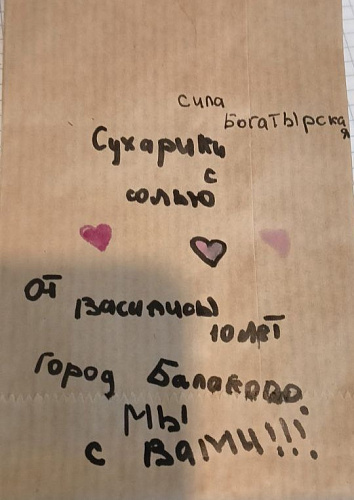 сила
Богатырская
Сухарики
с
солью
от
Василисы
10 лет
город Балаково.
мы
с вами!!!